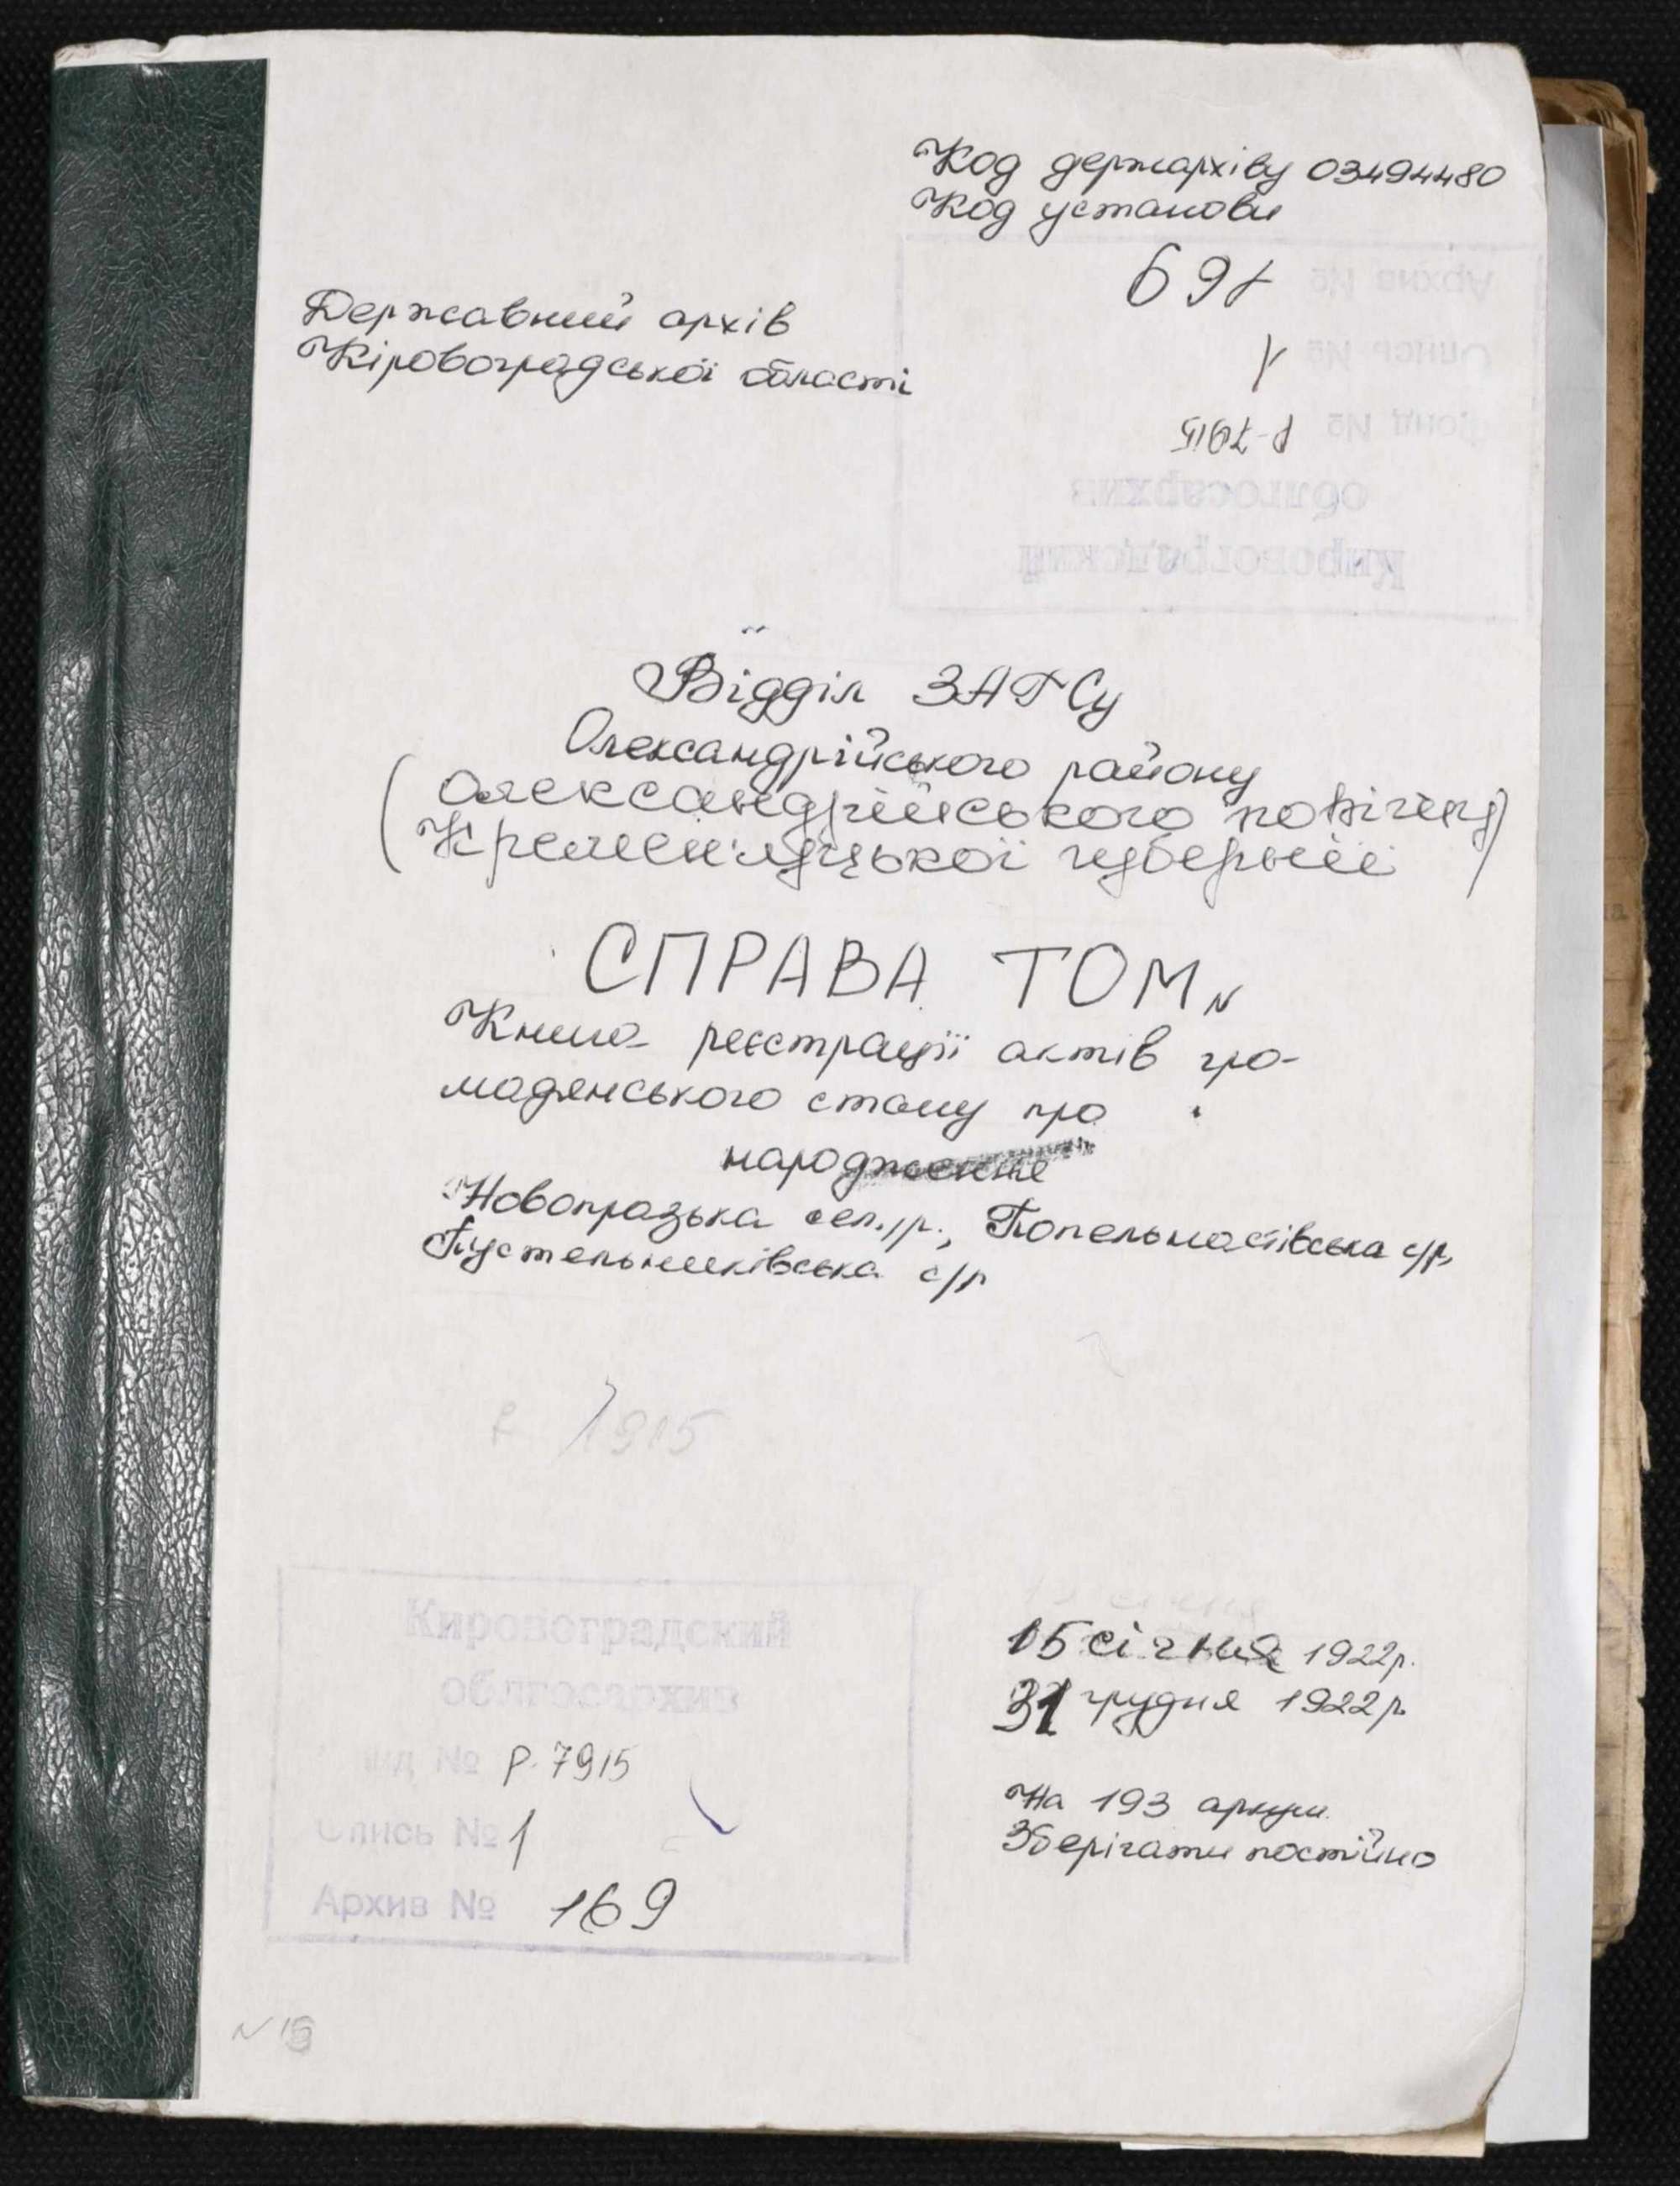 Код держархіву 03494480
Код установи
Архив № 169
Опись № 1
Фонд № Р-7915
облгосархив
Кировоградский
Державний архів
Кіровоградської області
Відділ ЗАГСу
Олександрійського району
(Олександрійського повіту
Кременчуцької губернії)
СПРАВА ТОМ N
Книга реєстрації актів гро-
мадянського стану про
народження
Новопразька сел.р., Попельнастівська с/р,
Пустельниківська с/р
Р 7915
Кировоградский
облгосархив
Фонд № Р-7915
Опись № 1
Архив № 169
15 січня 1922р.
31 грудня 1922р.
На 193 аркуш.
Зберігати постійно